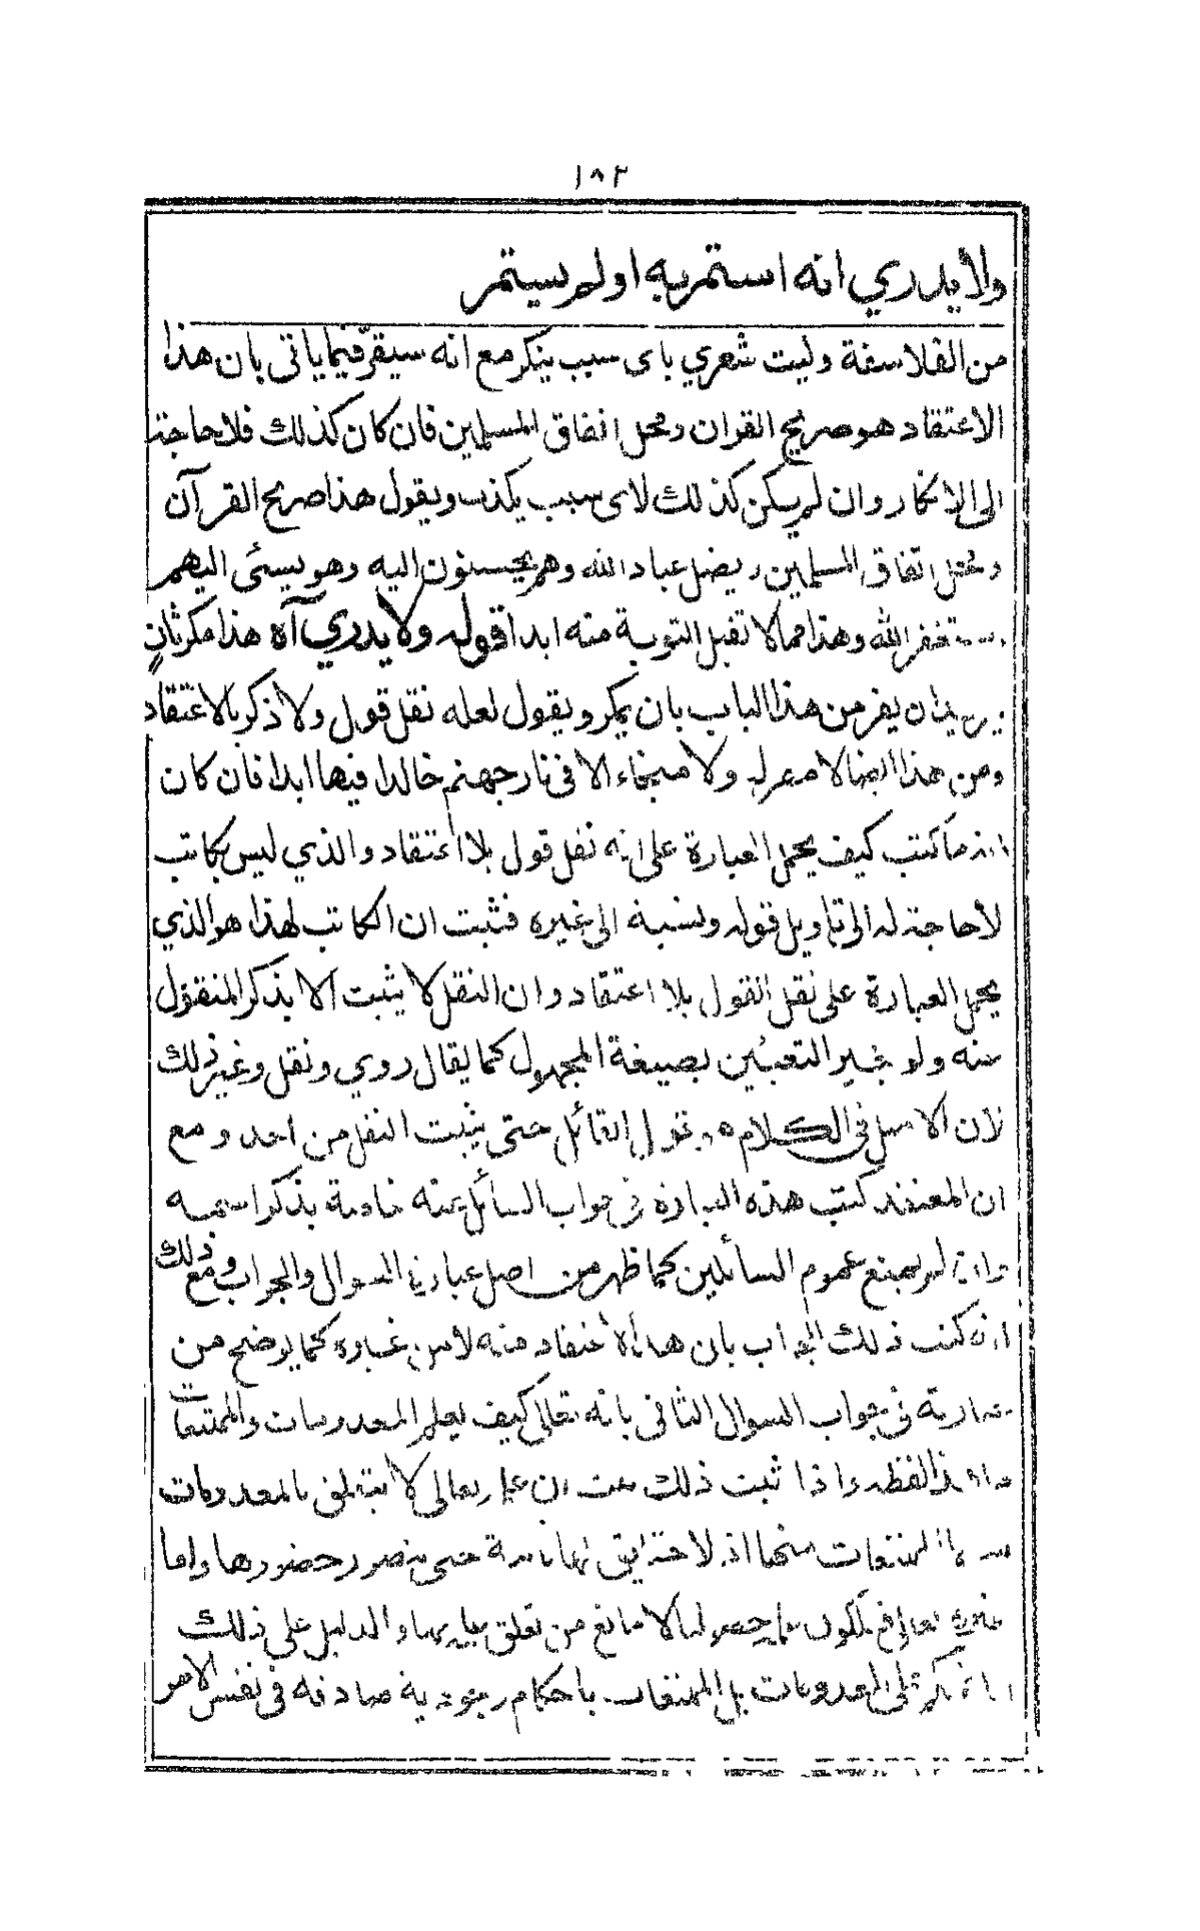 ١٨٢
ولا يدري انه استمر به او لم يستمر
من الفلاسفة وليت شعري باى سبب ينكر مع انه سيقرّ فيما ياتى بان هذا
الاعتقاد هو صريح القران ومحل اتفاق المسلمين فان كان كذلك فلا حاجة
الى الانكار وان لم يكن كذلك لاى سبب يكذب ويقول هذا صريح القرآن
ومحل اتفاق المسلمين ويضل عباد الله وهم يحسنون اليه وهو يسئى اليهم
نستغفر الله وهذا مما لا تقبل التوبة منه ابدا قوله ولا يدري آه هذا مكر ثانٍ
يريد ان يفر من هذا الباب بان يمكر ويقول لعله نقل قول ولا ذكر بالاعتقاد
ومن هذا ايضا لا مفر له ولا منجاء الا فى نار جهنم خالدا فيها ابدا فان كان
انه ما كتب كيف يحمل العبارة على انه نقل قول بلا اعتقاد والذي ليس بكاتب
لا حاجة له الى تاويل قوله ونسبة الى غيره فثبت ان الكاتب لهذا هو الذي
يحمل العبارة على نقل القول بلا اعتقاد وان النقل لا يثبت الا بذكر المنقول
منه ولو بغير التعيين بصيغة المجهول كما يقال روي ونقل وغير ذلك
لان الاصل فى الكلام هو قول القائل حتى يثبت النقل من احد ومع
ان المعتقد كتب هذه العبارة فى جواب السائل عنه خاصة بذكر اسمه
وانه لم يمنع عموم السائلين كما ظهر من اصل عبارة السوال والجواب ومع ذلك
انه كتب ذلك الجواب بان هذا الاعتقاد منه لا من غيره كما يوضح من
عبارته فى جواب السوال الثانى بانه تعالى كيف يعلم المعدومات والممتنعات
لفظه واذا ثبت ذلك ان علم تعالى لا يتعلق بالمعدومات
الممتنعات منها اذ لا حقايق لها ثابتة حتى يتصور حضورها واما
لا مانع من تعلق والدليل على ذلك
على المعدومات بل الممتنعات باحكام صادقة فى نفس الامر